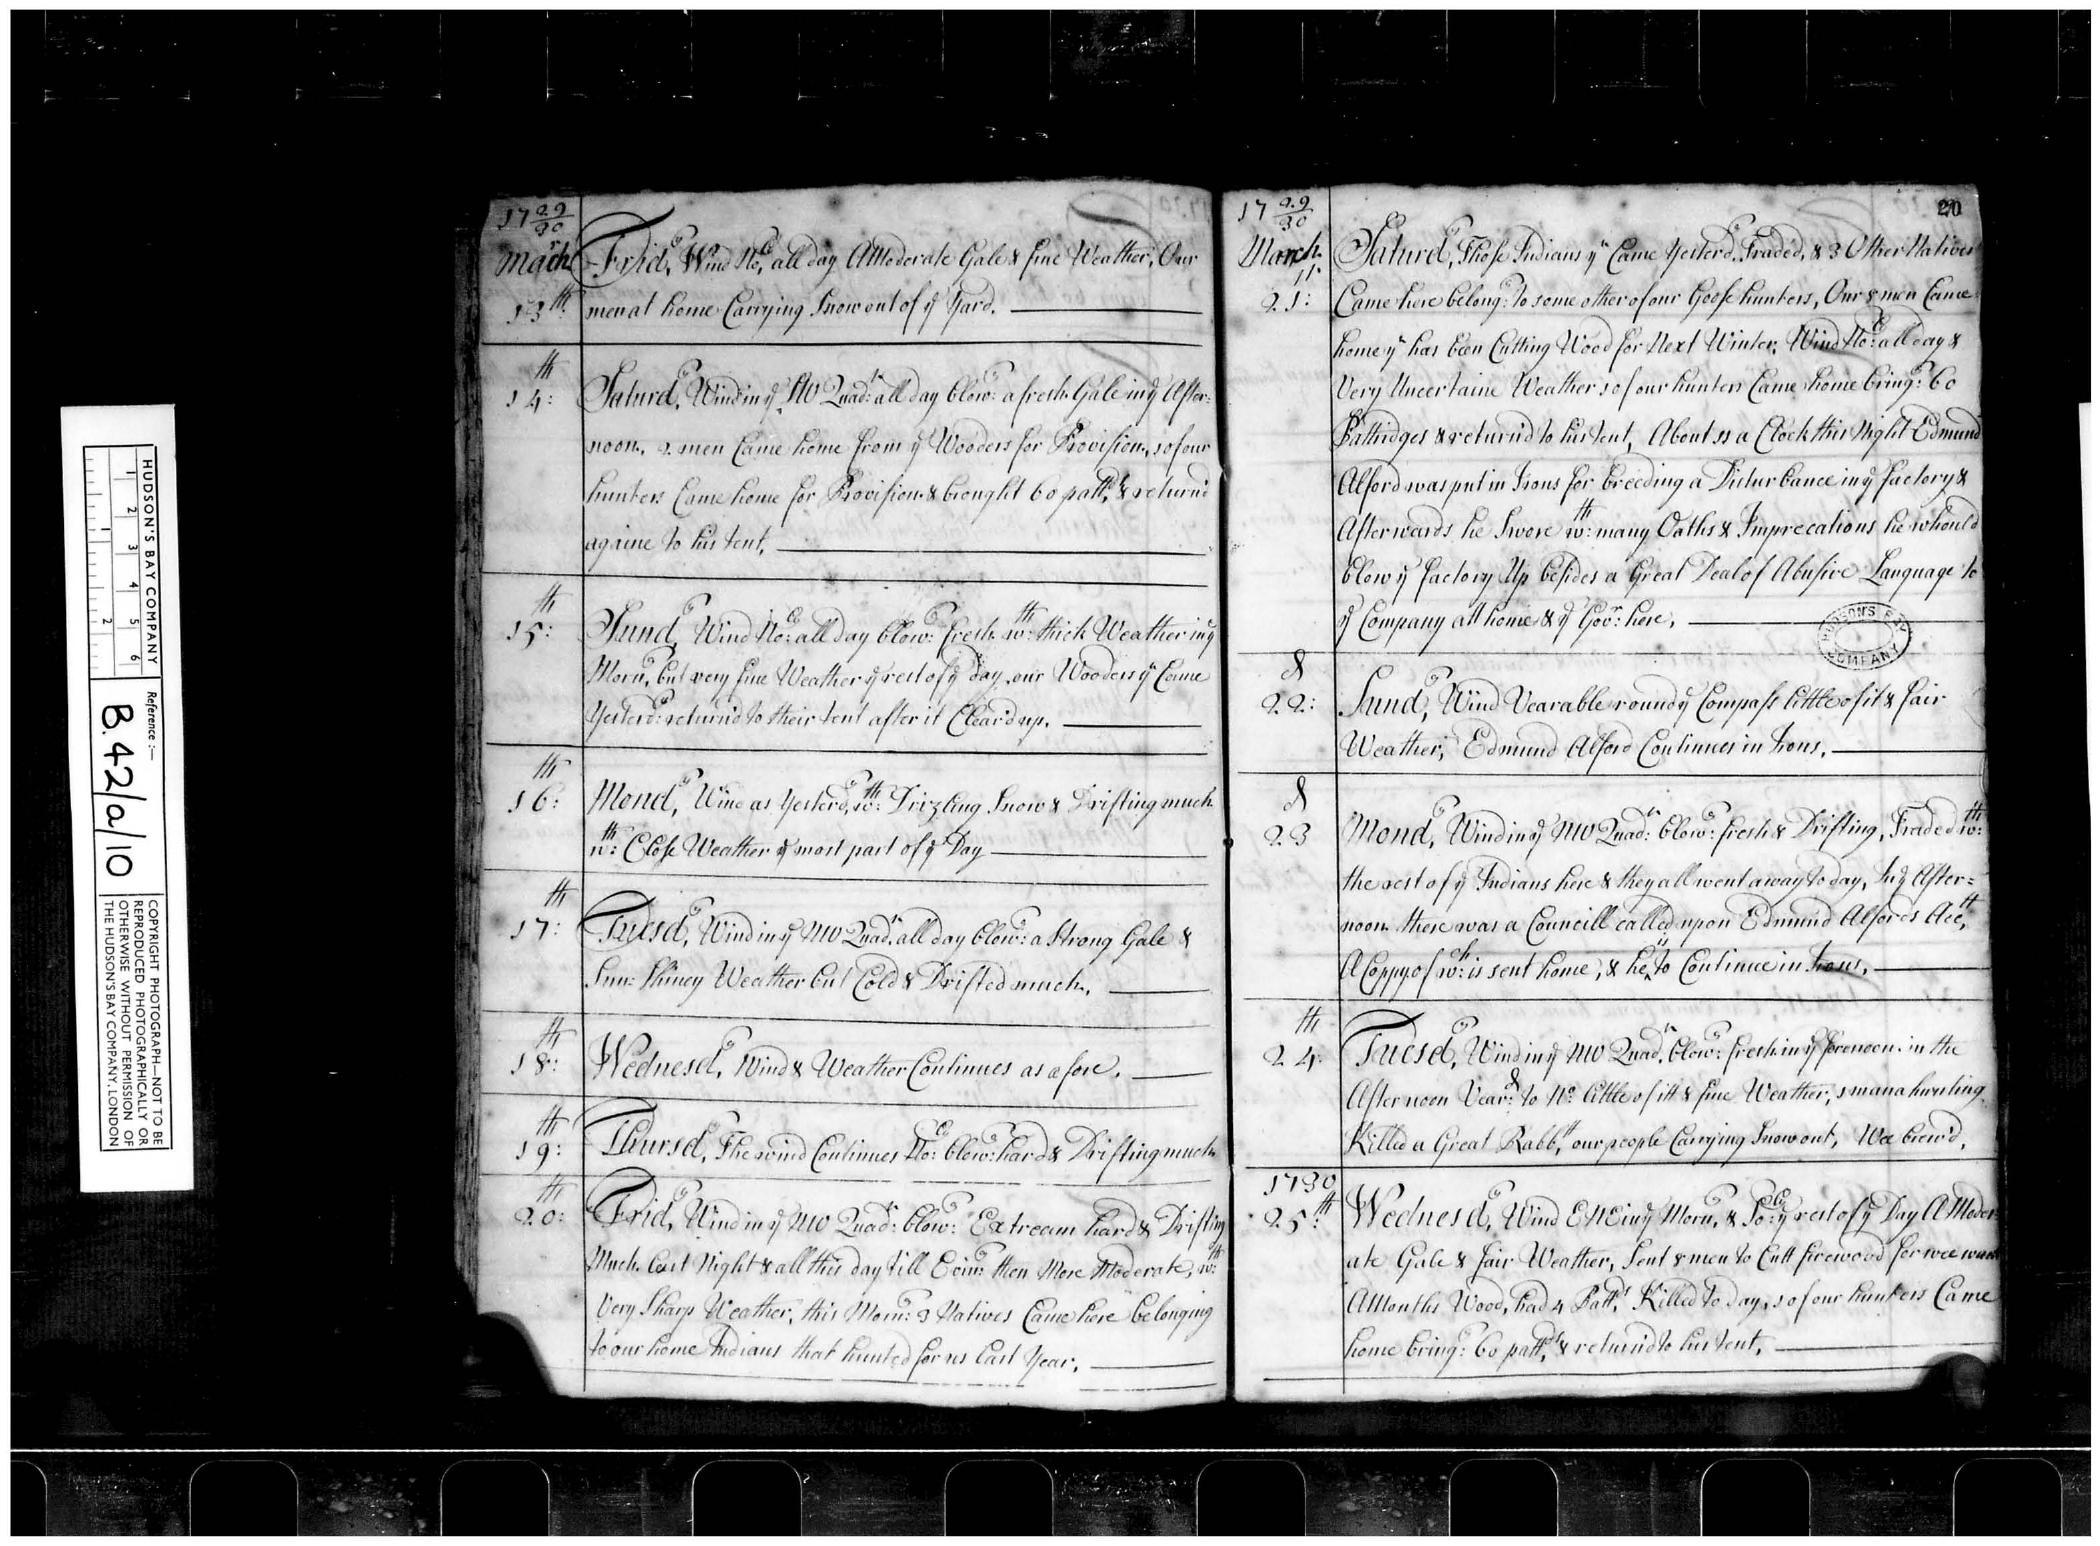 HUDSON'S BAY COMPANY
1 2 3 4 5 6
1 2
Reference :—
B.42/a/10
COPYRIGHT PHOTOGRAPH—NOT TO BE
REPRODUCED PHOTOGRAPHICALLY OR
OTHERWISE WITHOUT PERMISSION OF
THE HUDSON'S BAY COMPANY, LONDON
17 29/30
March
13th
Frid,y Wind No:e all day A Moderate Gale & fine Weather, Our
men at home Carrying Snow out of ye Yard.
14:th
Saturd,y Wind in ye NW Quad:r all day blow:g a fresh Gale in ye After-
noon, 2 men Came home from ye Wooders for Provision, 1 of our
hunters Came home for Provision & brought 60 patt,ds & return'd
againe to his tent,
15:th
Sund,y Wind No:e all day blow:g fresh w:th thick Weather in ye
Morn,g but very fine Weather ye rest of ye day, our Wooders yt Came
Yesterd:y return'd to their tent after it Clear'd up.
16:th
Mond,y Wind as Yesterd,y w:th Drizling Snow & Drifting much
w:th Close Weather ye most part of ye Day
17:th
Tuesd,y Wind in ye NW Quad,r all day blow:g a Strong Gale &
Sun: Shiney Weather but Cold & Drifted much,
18:th
Wednesd,y Wind & Weather Continues as afore,
19:th
Thursd,y The wind Continues No:e blow:g hard & Drifting much
20:th
Frid,y Wind in ye NW Quad:r blow:g Extream hard & Drifting
Much Last Night & all this day till Even:g then More Moderate, w:th
Very Sharp Weather, this Morn:g 3 Natives Came here belonging
to our home Indians that hunted for us Last Year,
20
17 29/30
March
21:st
Saturd,y Those Indians yt Came Yesterd,y Traded, & 3 Other Natives
Came here belong:g to some other of our Goose hunters, Our 8 men Came
home yt has been Cutting Wood for Next Winter, Wind No:e all day &
Very Uncertaine Weather 1 of our hunters Came home bring:g 60
Pattridges & return'd to his tent, About 11 a Clock this Night Edmund
Alford was put in Irons for breeding a Disturbance in ye factory &
Afterwards he Swore w:th many Oaths & Imprecations he whould
blow ye factory Up besides a Great Deal of Abusive Language to
ye Company att home & ye Gov:r here,
HUDSON'S BAY COMPANY
22:d
Sund,y Wind Vearable round ye Compass little of it & fair
Weather, Edmund Alford Continues in Irons,
23d
Mond,y Wind in ye NW Quad:r blow:g fresh & Drifting, Traded w:th
the rest of ye Indians here & they all went away to day, In ye After=
noon there was a Councill called upon Edmund Alfords Acc,tt
A Coppy of w:ch is sent home, & he is to Continue in Irons,
24:th
Tuesd,y Wind in ye NW Quad,r blow:g fresh in ye forenoon: in the
Afternoon Vear:d to No: little of itt & fine Weather, 1 man a hunting
Killed a Great Rabb,tt our people Carrying Snow out, Wee brew'd,
1730
25:th
Wednesd,y Wind ENE in ye Morn,g & So:e ye rest of ye Day A Moder-
ate Gale & fair Weather, Sent 8 men to Cutt firewood for wee want
A Months Wood, had 4 Patt,ds Killed to day, 1 of our hunters Came
home bring:g 60 patt,ds & return'd to his tent,